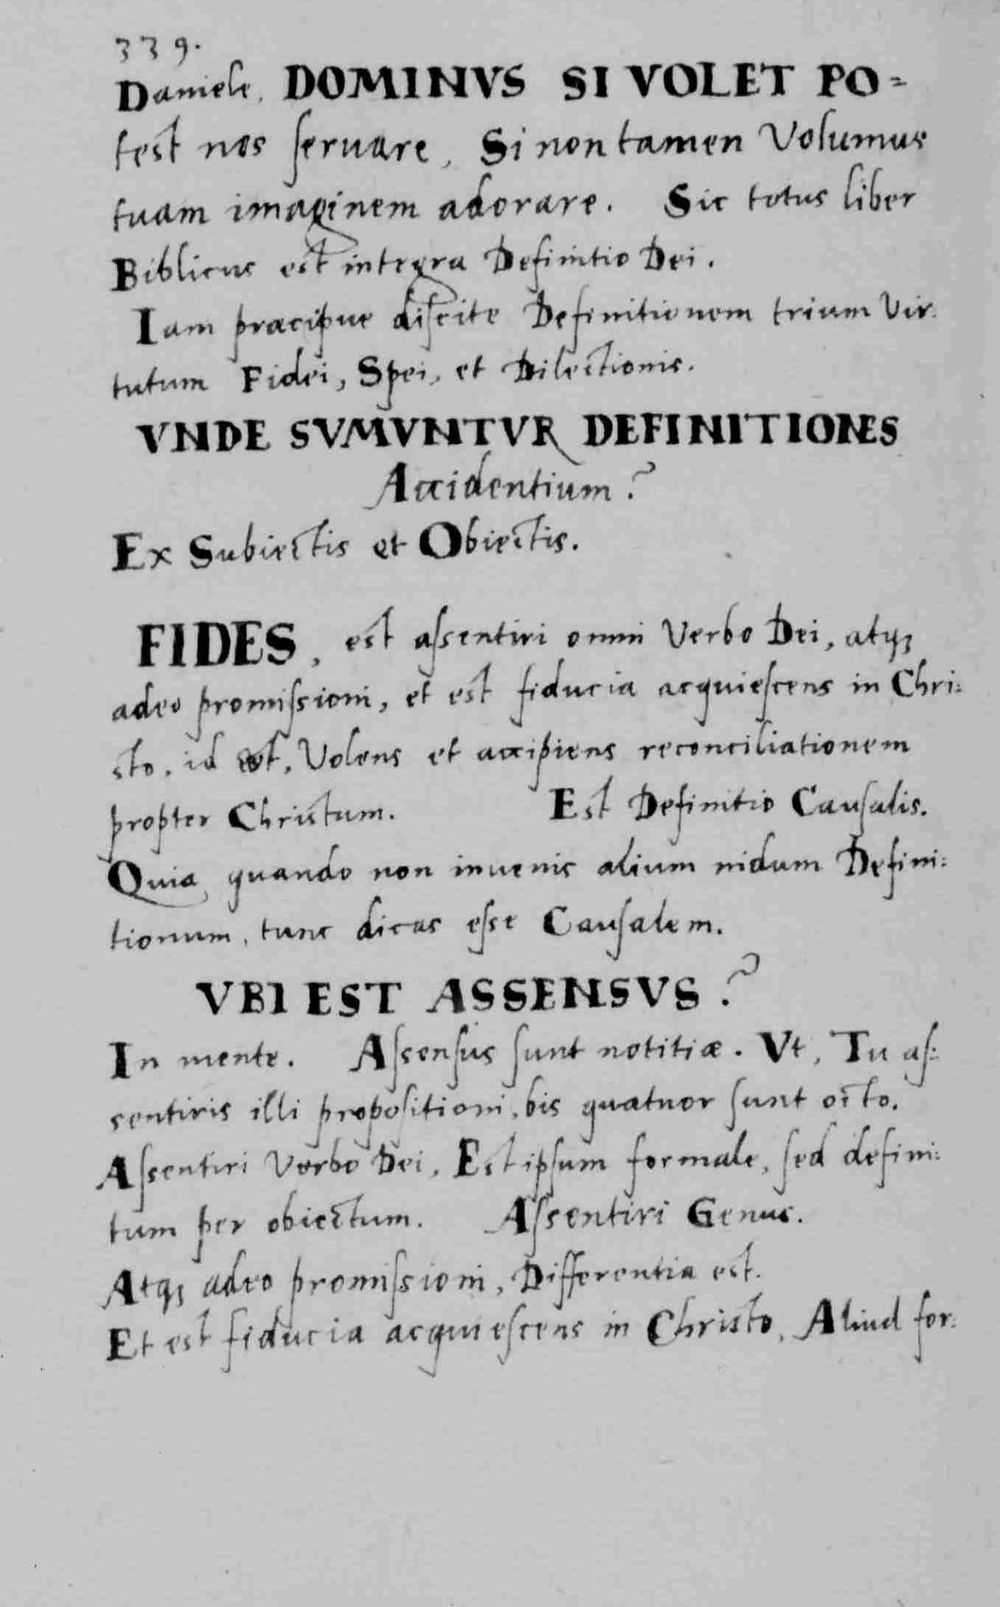 339.
Daniele, DOMINVS SI VOLET PO=
test nos seruare, Si non tamen Volumus
tuam imaginem adorare. Sic totus liber
Biblicus est integra Definitio Dei.
Iam præcipue discite Definitionem trium Vir:
tutum Fidei, Spei, et Dilectionis.
VNDE SVMVNTVR DEFINITIONES
Accidentium?
Ex Subiectis et Obiectis.
FIDES, est assentiri omni Verbo Dei, atq;
adeo promissioni, et est fiducia acquiescens in Chri:
sto, id est, Volens et accipiens reconciliationem
propter Christum. Est Definitio Causalis.
Quia, quando non inuenis alium nidum Defini:
tionum, tunc dicas esse Causalem.
VBI EST ASSENSVS?
In mente. Assensus sunt notitiæ. Vt, Tu as:
sentiris illi propositioni, bis quatuor sunt octo.
Assentiri Verbo Dei, Est ipsum formale, sed defini:
tum per obiectum. Assentiri Genus.
Atq; adeo promissioni, Differentia est.
Et est fiducia acquiescens in Christo, Aliud for: